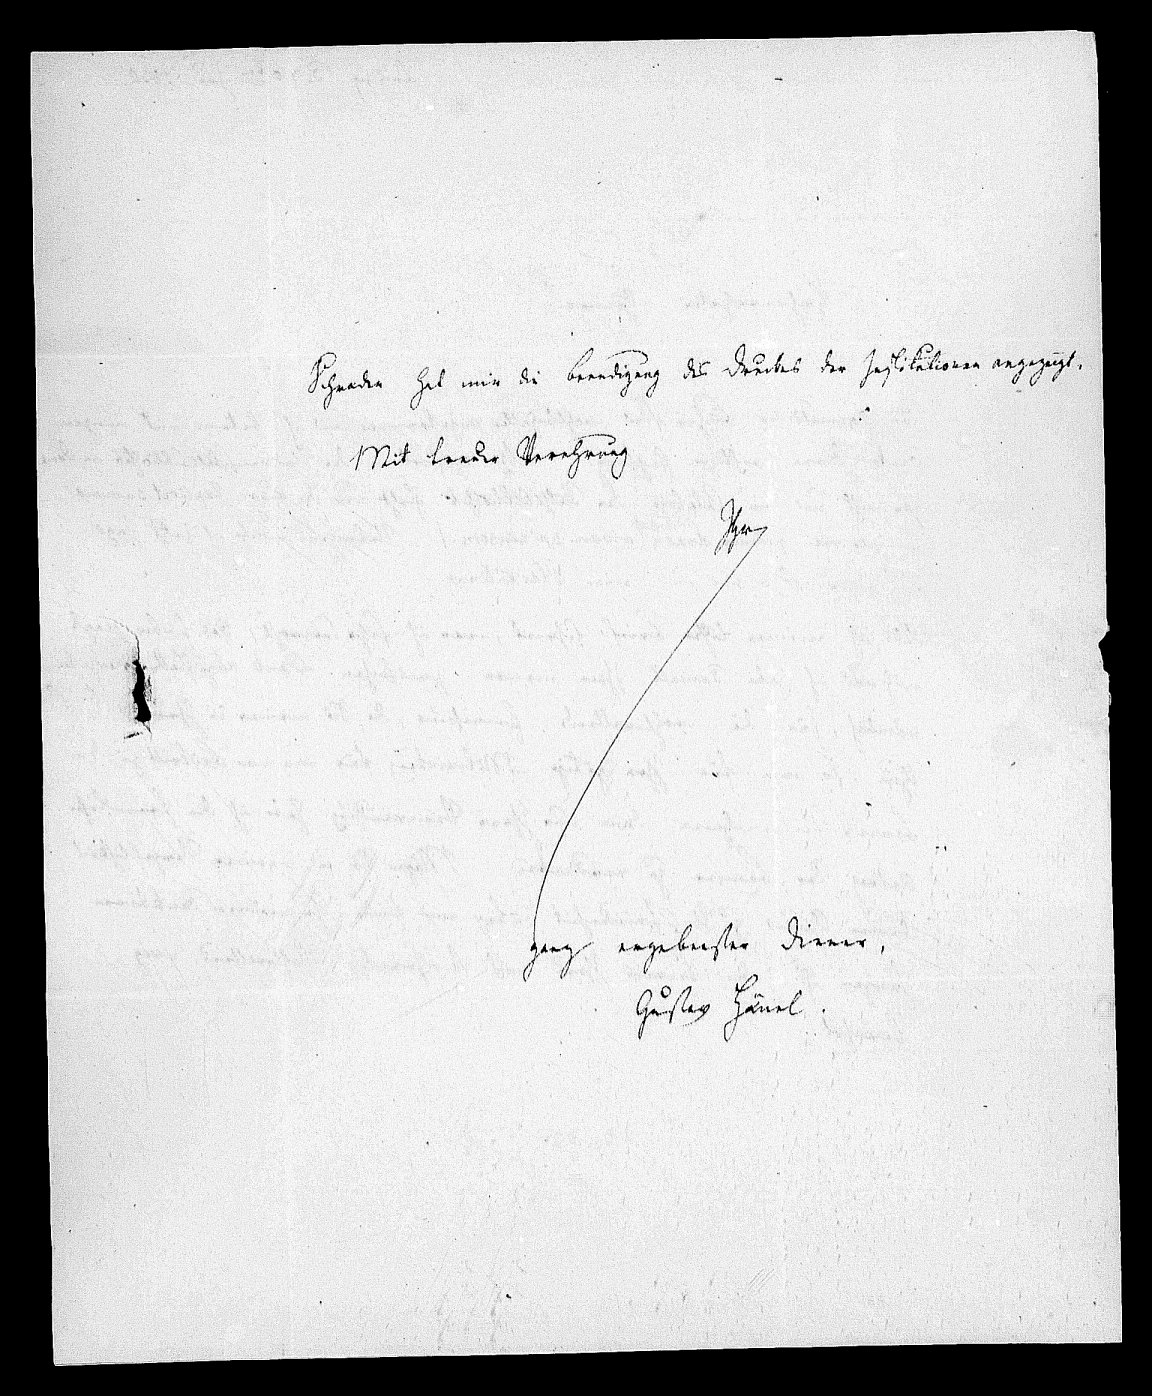 Schrader hat mir die Beendigung des Druckes der Institutionen angezeigt.
Mit treuer Verehrung
Ihr
ganz ergebenster Diener,
Gustav Hänel.